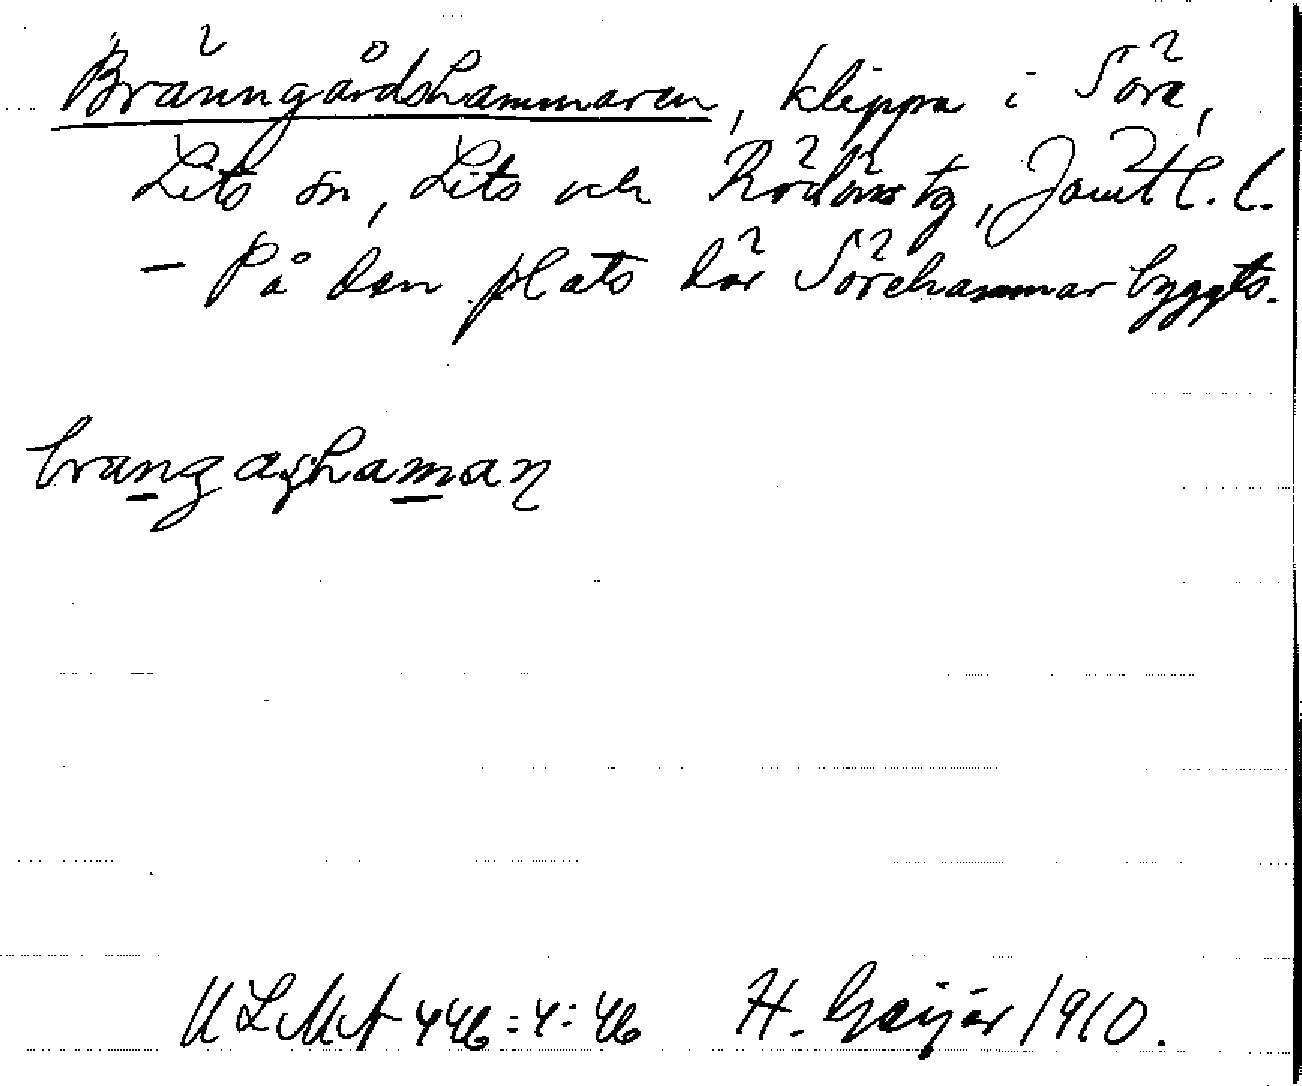 Bränngårdshammaren, klippa i Söre,
Lits sn, Lits och Rödöns tg, Jämtl. l.
– På den plats där Sörehammar byggts.
brangashaman
ULMA 446:4:46 H. Geijer 1910.